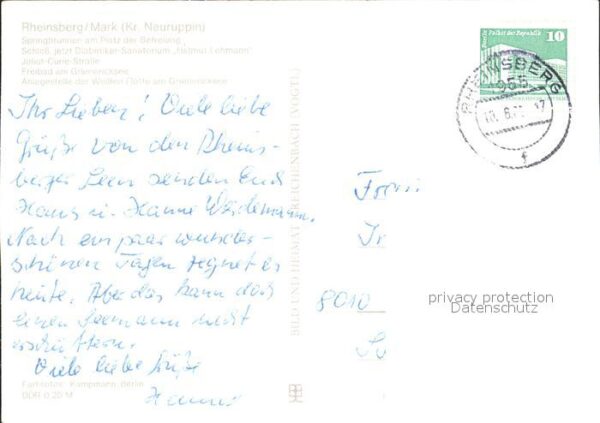 Rheinsberg/Mark (Kr. Neuruppin)
Springbrunnen am Platz der Befreiung
Schloß, jetzt Diabetiker-Sanatorium „Helmut Lehmann"
Joliot-Curie-Straße
Freibad am Grienericksee
Anlegestelle der Weißen Flotte am Grienericksee
Ihr Lieben! Viele liebe
Grüße von den Rheins-
berger Seen senden Euch
Hans u. Hanne
Nach ein paar wunder-
schönen Tagen regnet es
heute. Aber das kann doch
einen Seemann nicht
erschüttern.
Viele liebe Grüße
Hanne
Farbfotos: Kampmann, Berlin
DDR 0,20 M
BILD UND HEIMAT REICHENBACH (VOGTL)
Palast der Republik
10
RHEINSBERG
1955
8010
privacy protection
Datenschutz